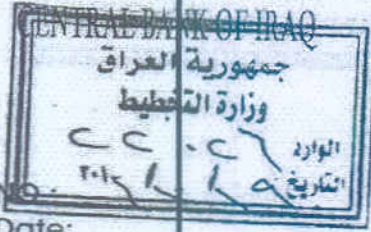 CENTRAL BANK OF IRAQ
جمهورية العراق
وزارة التخطيط
الوارد
التاريخ
No.
Date: